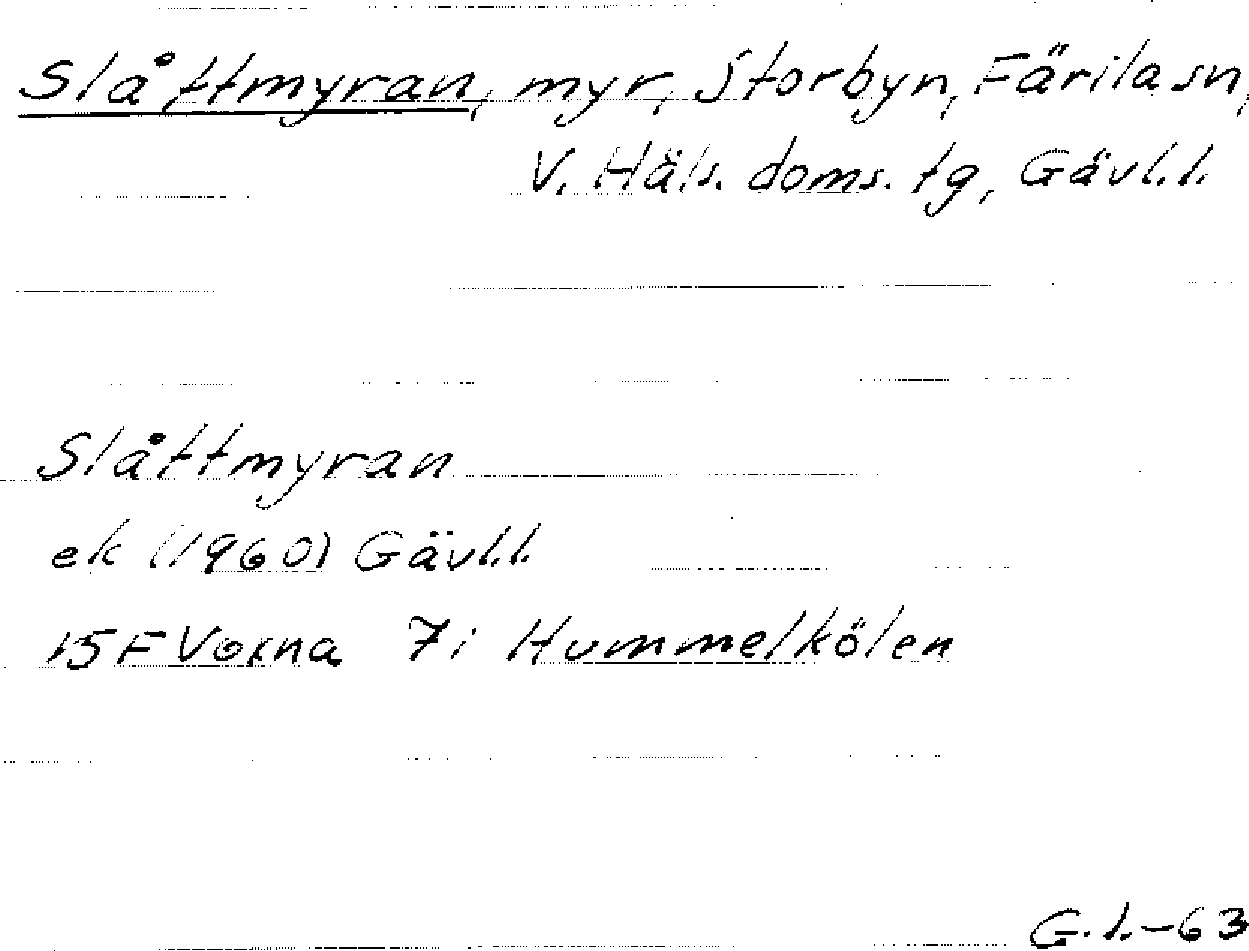 Slåttmyran, myr, Storbyn, Färila sn,
V. Häls. doms. tg, Gävl.l.
Slåttmyran
ek (1960) Gävl.l.
15F Voxna 7i Hummelkölen
G.l.-63